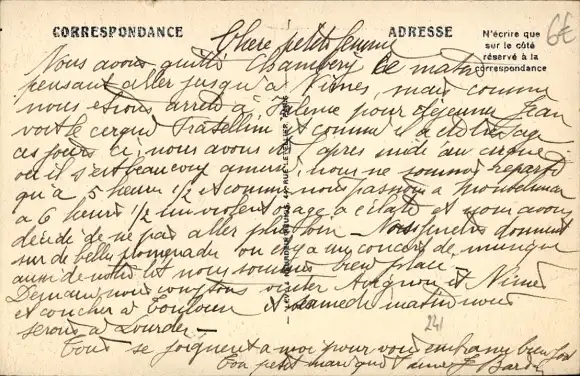 CORRESPONDANCE
ADRESSE
N'écrire que
sur le côté
réservé à la
correspondance
6€
Chère petite femme
Nous avons quitté Chambéry ce matin
pensant aller jusqu'à Nîmes, mais comme
nous étions arrêté à Valence pour déjeuner Jean
voit le cirque Fratellini et comme il a été très sage
ces jours ci, nous avons été l'après midi au cirque
où il s'est beaucoup amusé, nous ne sommes reparti
qu'à 5 heures 1/2 et comme nous passions à Montélimar
à 6 heures 1/2 un violent orage a éclaté et nous avons
décidé de ne pas aller plus loin - Nos fenêtres donnent
sur de belles promenades où il y a un concert de musique
aussi de notre lit nous sommes bien placé
Demain nous comptons visiter Avignon et Nîmes
et coucher à Toulouse et samedi matin nous
serons à Lourdes -
Tous se joignent à moi pour vous embrasser bien fort
Ton petit mari qui t'aime
241